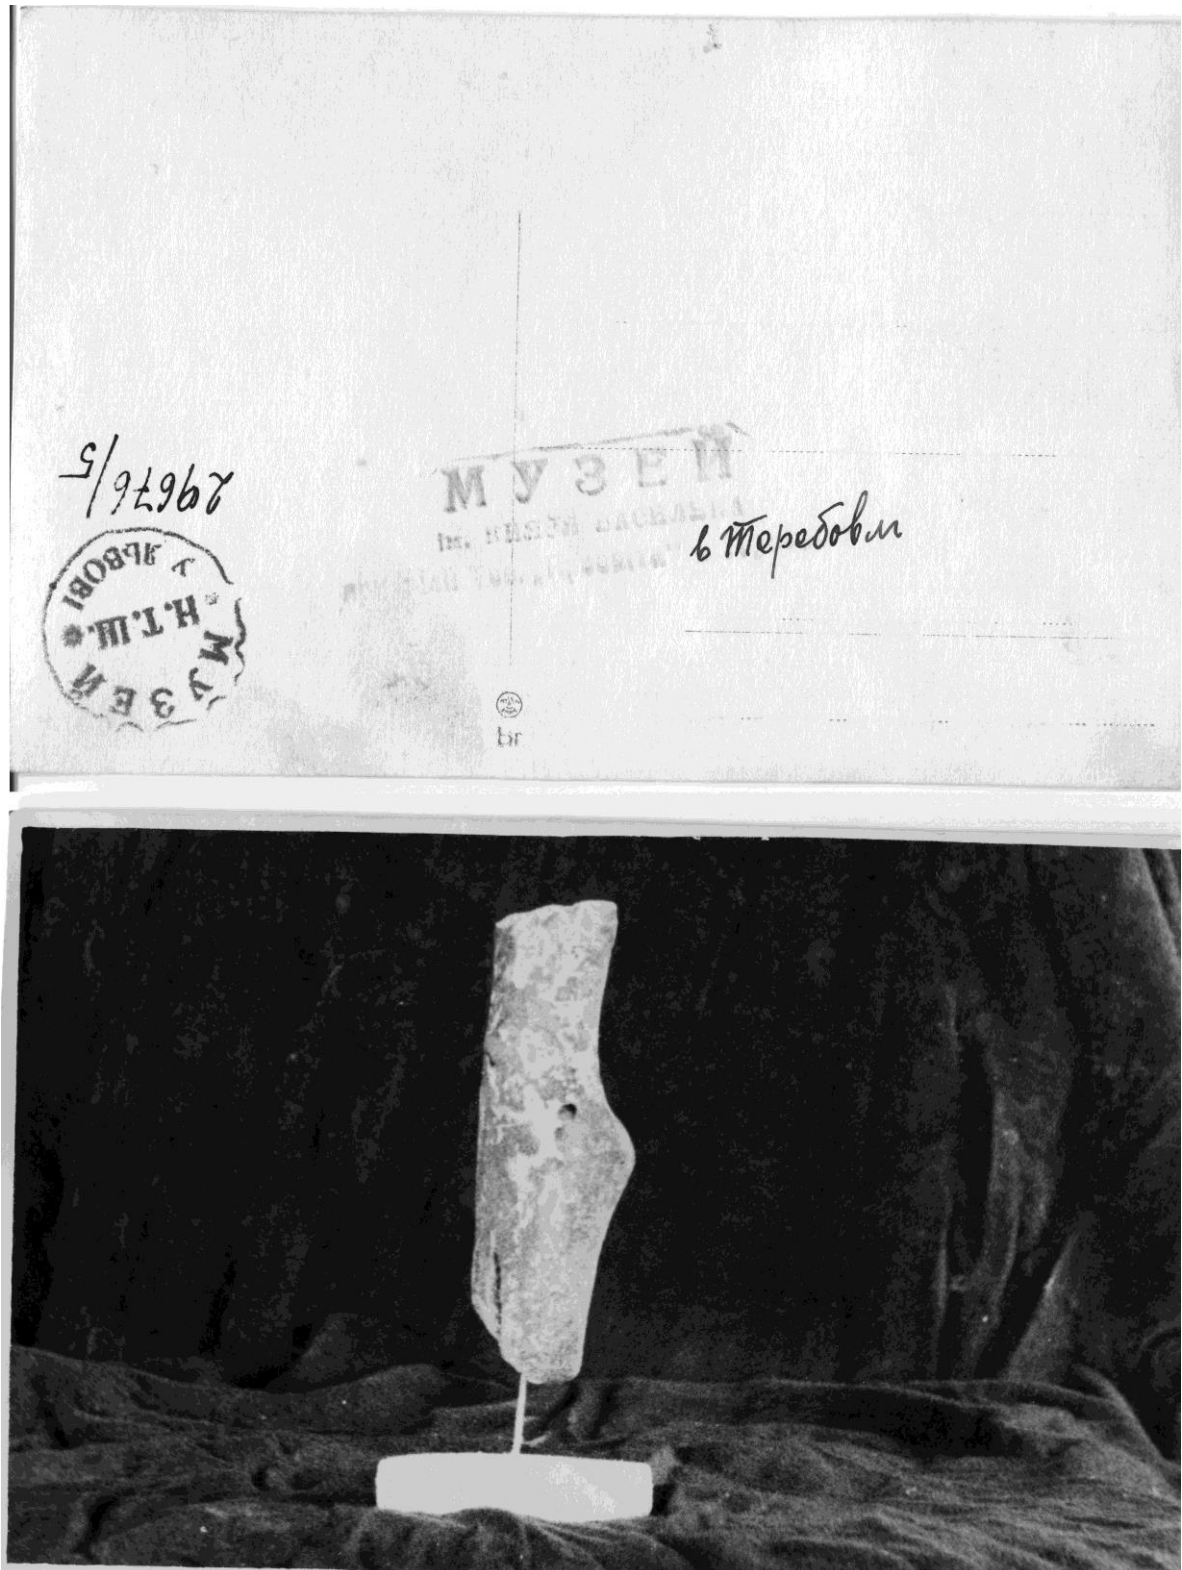 29676/5
МУЗЕЙ
Н.Т.Ш.
У ЛЬВОВІ
МУЗЕЙ
ім. КНЯЗЯ ВАСИЛЬКА
в Теребовли